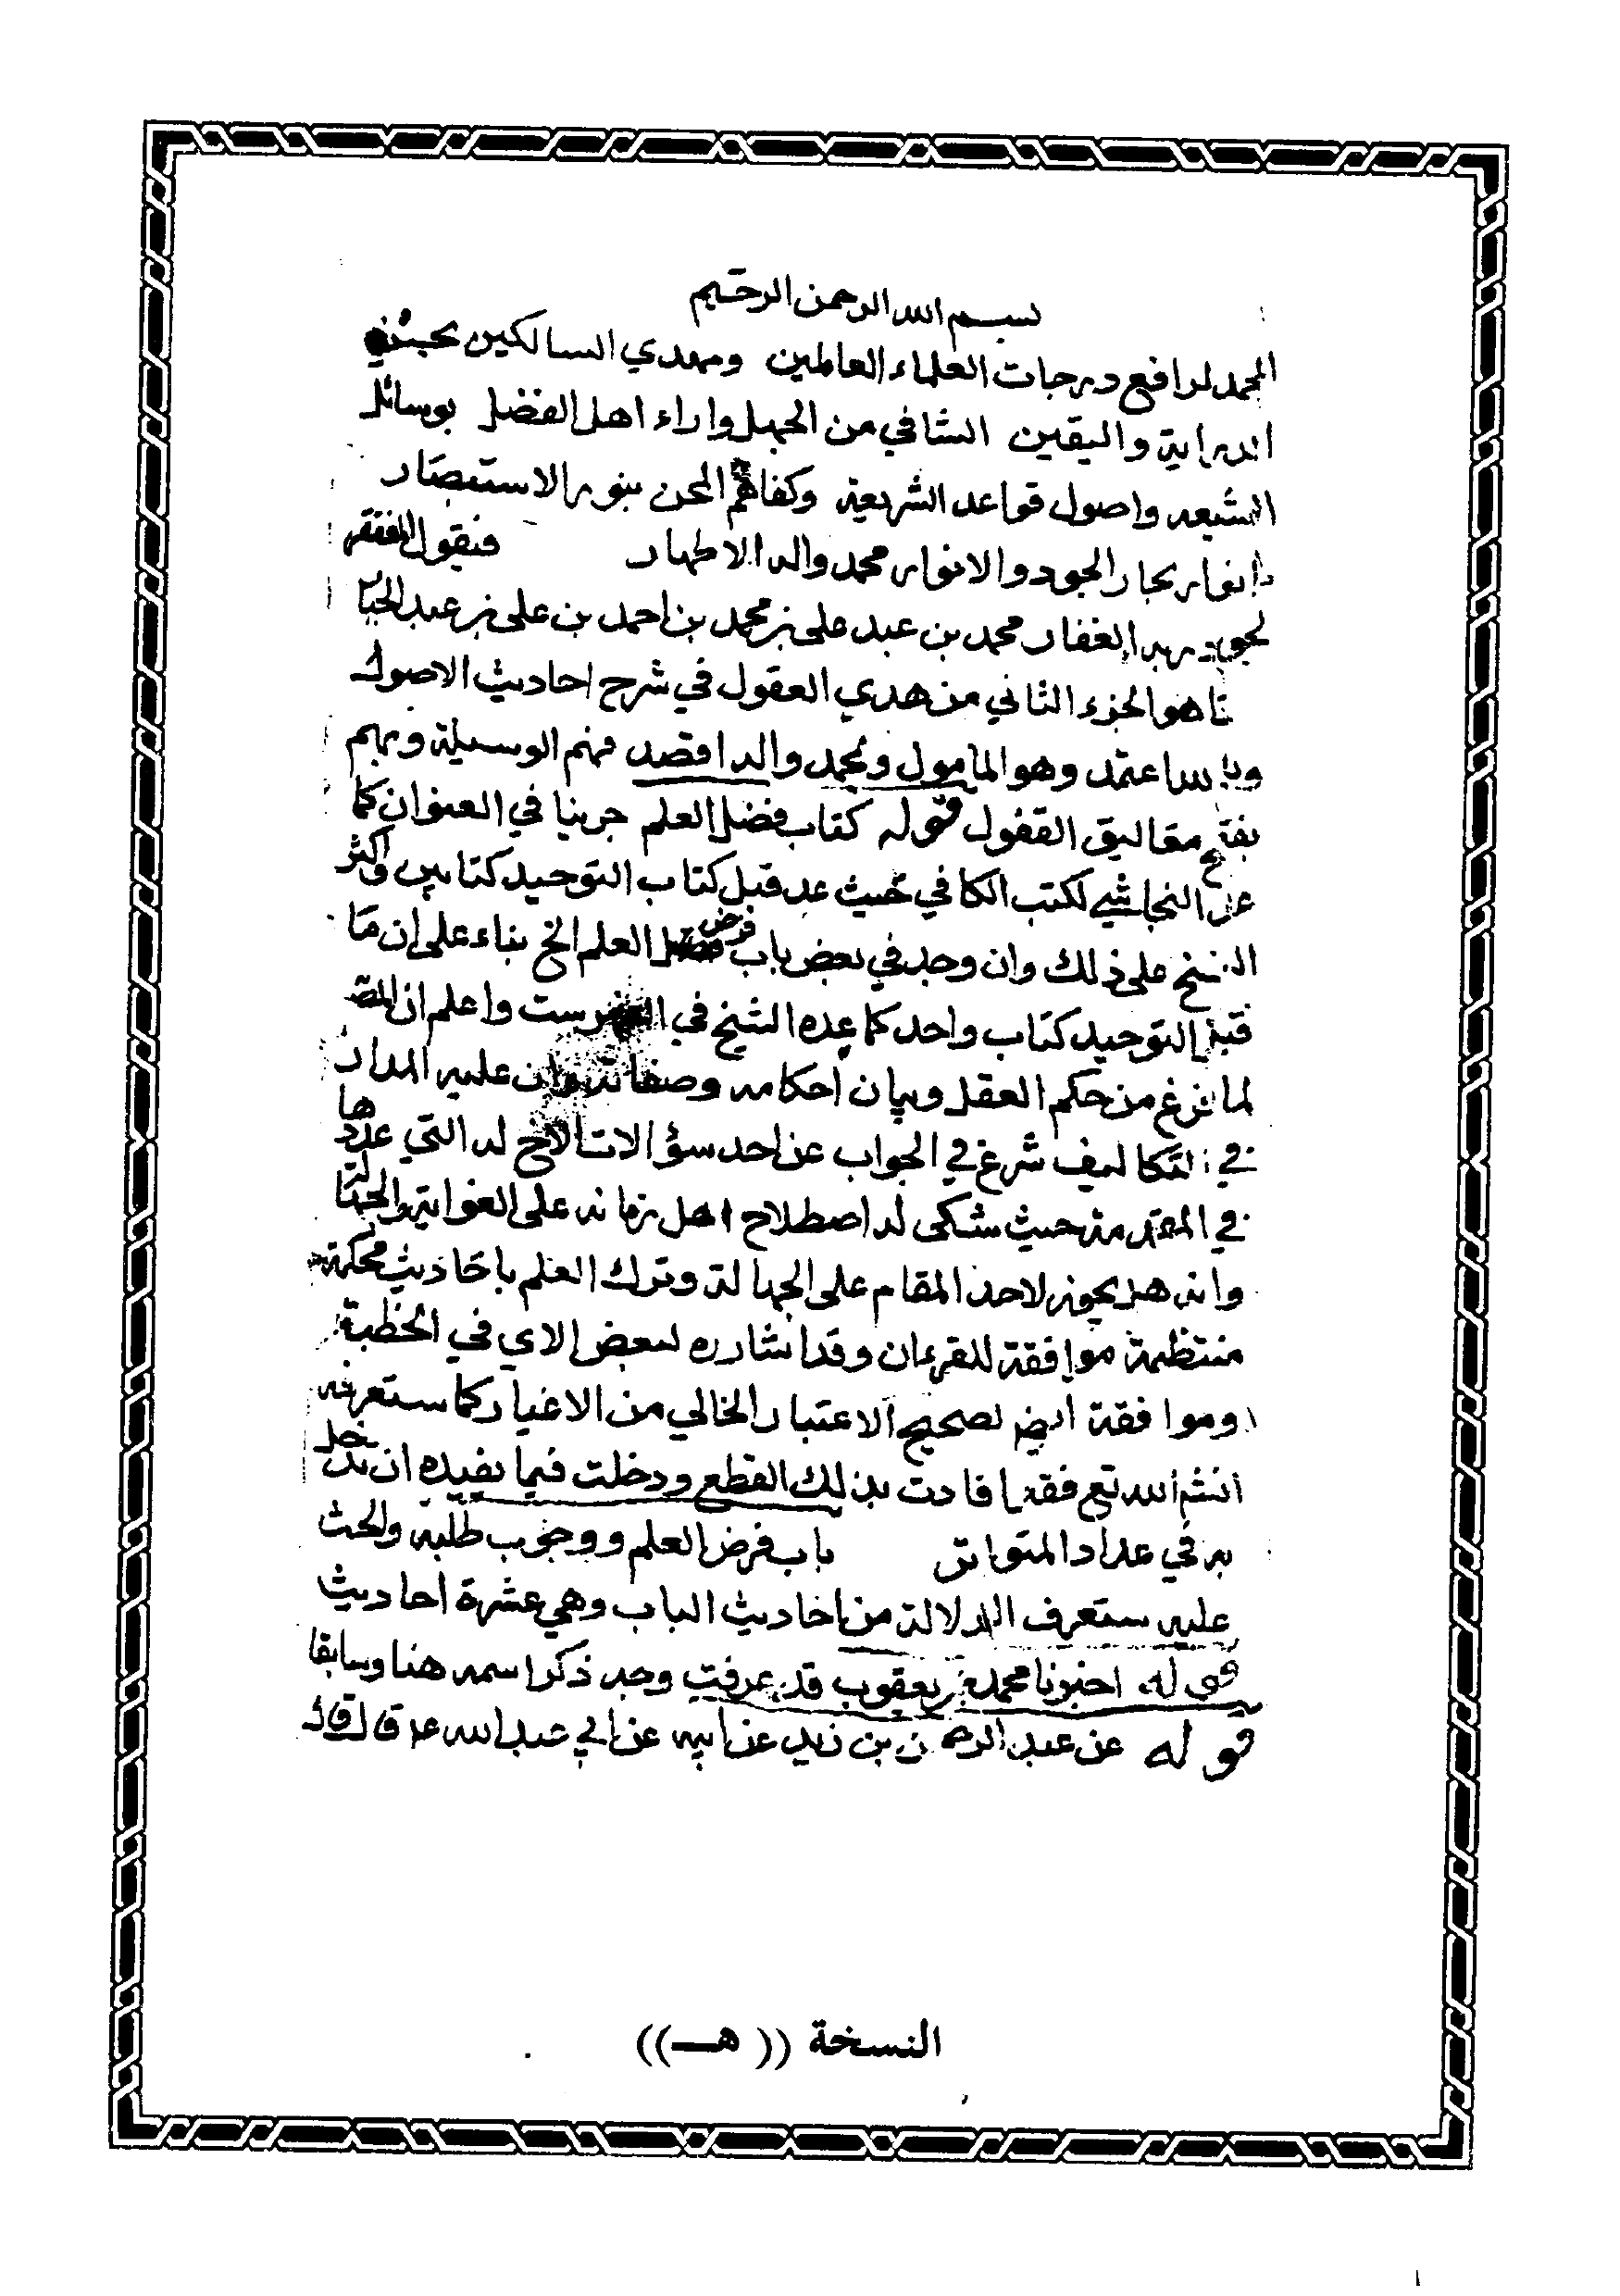 بسم الله الرحمن الرحيم
الحمد لرافع درجات العلماء العالمين ومهدي السالكين
الدراية واليقين الشافي من الجهل واراء اهل الفضل بوسائل
الشيعه واصول قواعد الشريعة وكفاهم المحن بنور الاستبصار
بانوار بحار الجود والانوار محمد واله الاطهار فيقول المفتقر
ربه الغفار محمد بن عبد علي بن محمد بن احمد بن علي بن عبد الجبار
هذا هو الجزء الثاني من هدي العقول في شرح احاديث الاصول
وبالله اعتمد وهو المأمول وبمحمد واله اقصد فهم الوسيلة وبهم
بفتح مغاليق القفول قوله كتاب فضل العلم جرينا في العنوان كما
عن النجاشي لكتب الكافي حيث عد قبل كتاب التوحيد كتابين واكثر
النسخ على ذلك وان وجد في بعض باب فرض العلم الخ بناء على ان ما
قبل التوحيد كتاب واحد كما عده الشيخ في الفهرست واعلم ان المصـ
لما فرغ من حكم العقل وبيان احكامه وصفاته وان عليه المدار
في التكاليف شرع في الجواب عن احد سؤالات الاخ له التي عددها
في المقدمة حيث شكى له اصطلاح اهل زمانه على الغواية والجهالة
وانه هل يجوز لاحد المقام على الجهالة وترك العلم باحاديث محكمة
منتظمة موافقة للقرءان وقد اشار ره لبعض الاي في الخطبة
وموافقة ايض لصحيح الاعتبار الخالي من الاغيار كما ستعرفه
انشم الله تع فقد افادت بذلك القطع ودخلت فيما نفيده ان يدخل
به في عداد المتواتر باب فرض العلم ووجوب طلبه والحث
عليه ستعرف الدلالة من احاديث الباب وهي عشرة احاديث
قوله اخبرنا محمد بن يعقوب قد عرفت وجه ذكر اسمه هنا وسابقا
قوله عن عبد الرحمن بن زيد عن ابيه عن ابي عبد الله ع قال قال
النسخة (( هـ ))